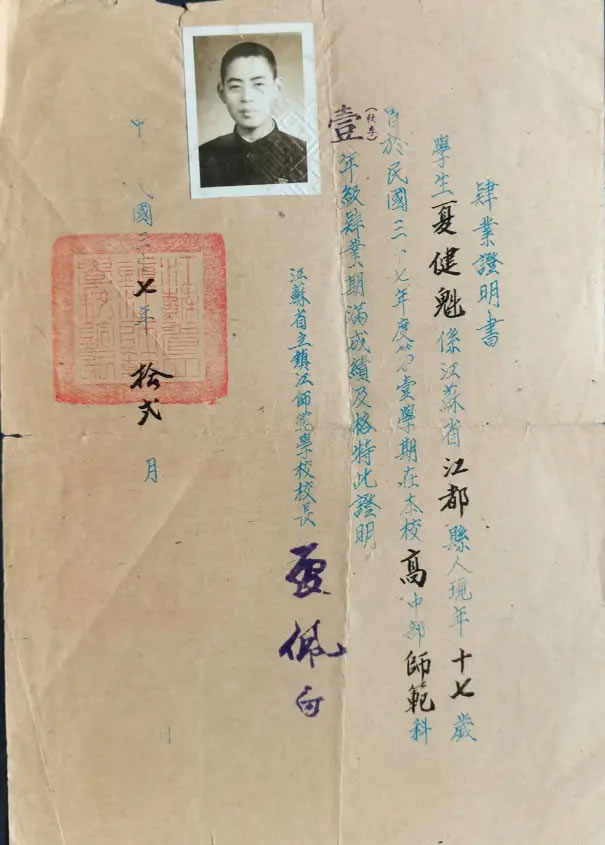 肄業證明書
學生夏健魁係江蘇省江都縣人現年十七歲
曾於民國三十七年度第壹學期在本校高中部師範科
(秋季)
壹年級肄業期滿成績及格特此證明
江蘇省立鎮江師範學校校長
佩白
中民國三十七年拾弍月 日